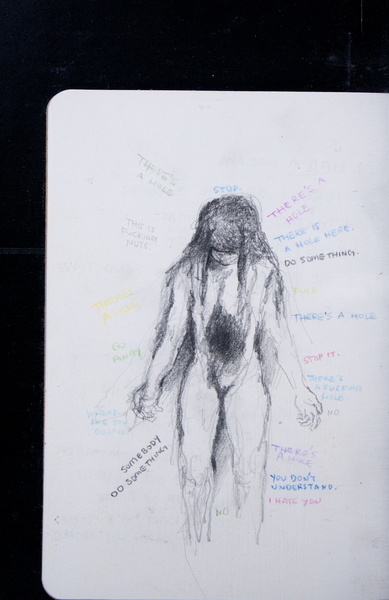 THERE'S
A HOLE
STOP.
THERE'S A
HOLE.
THIS IS
FUCKING
NUTS.
THERE IS
A HOLE HERE.
DO SOMETHING.
FUCK
THERE'S A HOLE
STOP IT.
THERE'S
A FUCKING
HOLE
NO
SOMEBODY
DO SOMETHING
THERE'S
A HOLE
YOU DON'T
UNDERSTAND.
I HATE YOU
NO